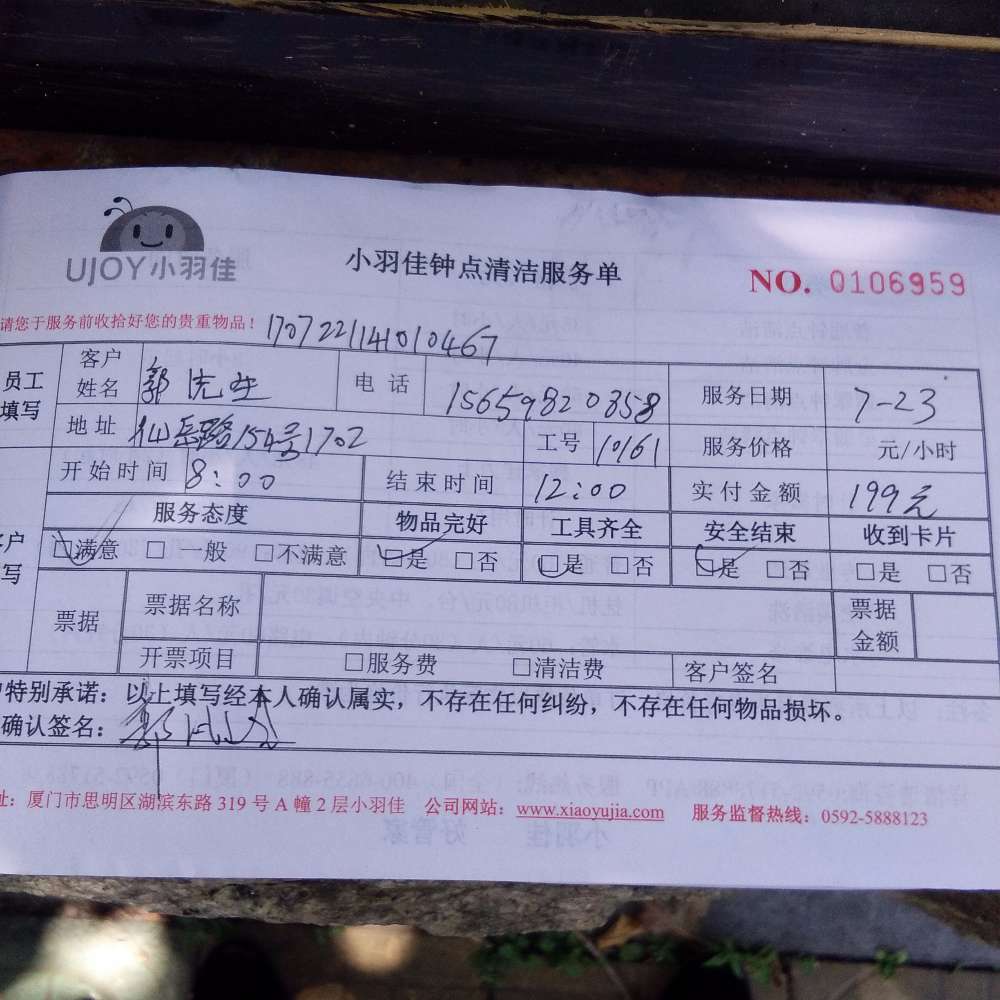 UJOY小羽佳
小羽佳钟点清洁服务单
NO. 0106959
请您于服务前收拾好您的贵重物品！
1707221141010467
员工填写 客户姓名 郭先生 电话 15659820358 服务日期 7-23
地址 仙岳路154号1702 工号 10161 服务价格 元/小时
开始时间 8:00 结束时间 12:00 实付金额 199元
服务态度 物品完好 工具齐全 安全结束 收到卡片
户 写 □满意 □一般 □不满意 □是 □否 □是 □否 □是 □否 □是 □否
票据 票据名称 票据金额
开票项目 □服务费 □清洁费 客户签名
特别承诺：以上填写经本人确认属实，不存在任何纠纷，不存在任何物品损坏。
确认签名：
址：厦门市思明区湖滨东路 319 号 A 幢 2 层小羽佳 公司网站：www.xiaoyujia.com 服务监督热线：0592-5888123